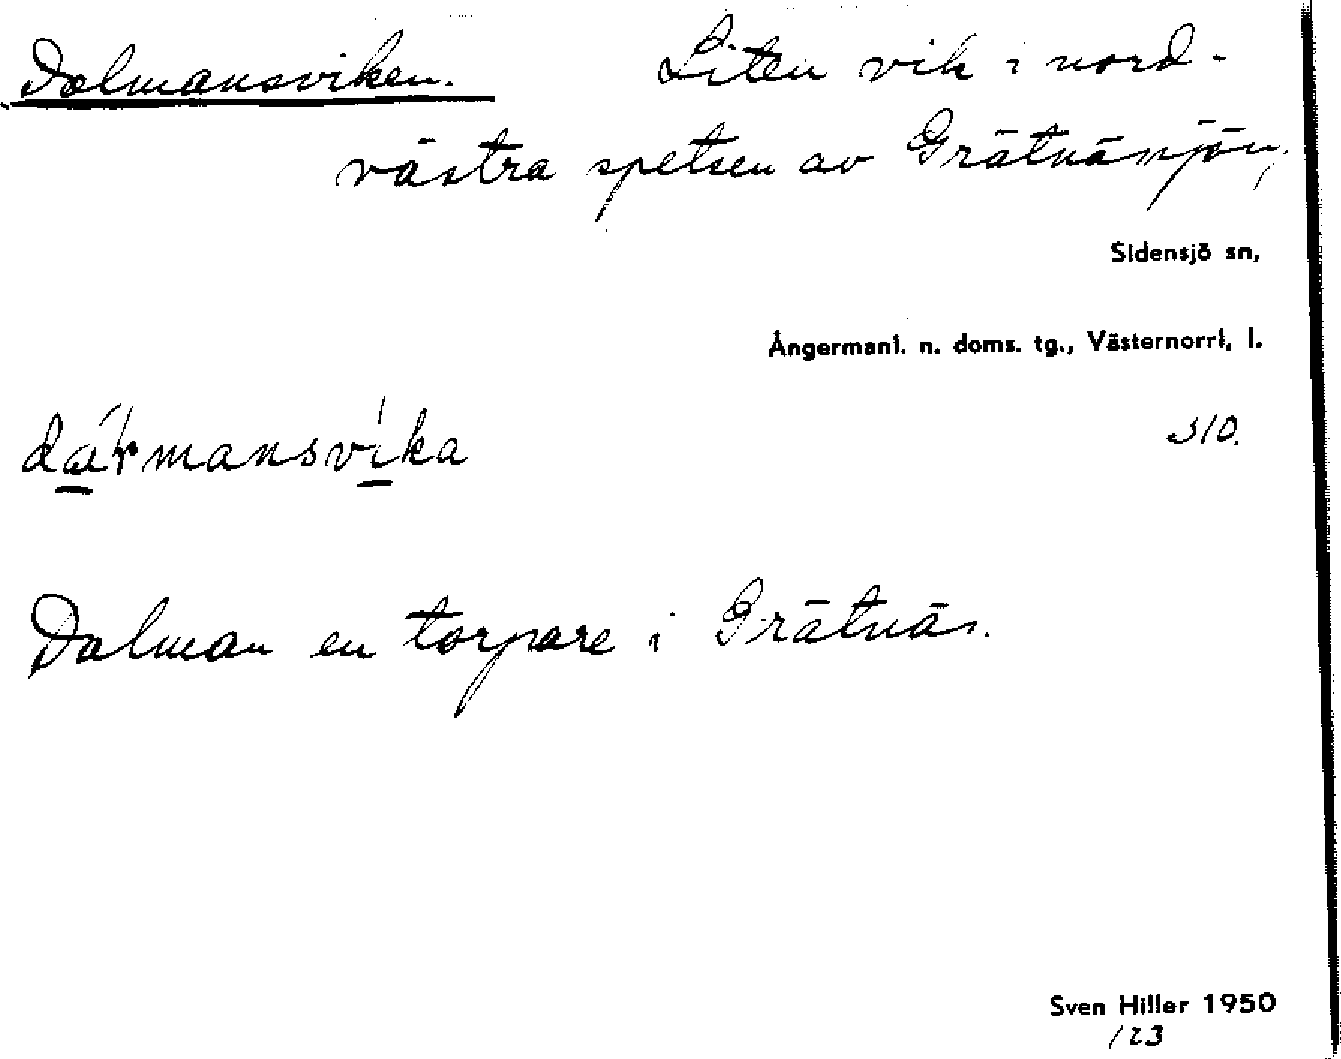 Dalmansviken. Liten vik i nord-
västra spetsen av Grätnäsjön,
Sidensjö sn,
Ångermanl. n. doms. tg., Västernorrl. l.
dármansvíka S10.
Dalman en torpare i Grätnäs.
Sven Hiller 1950
123